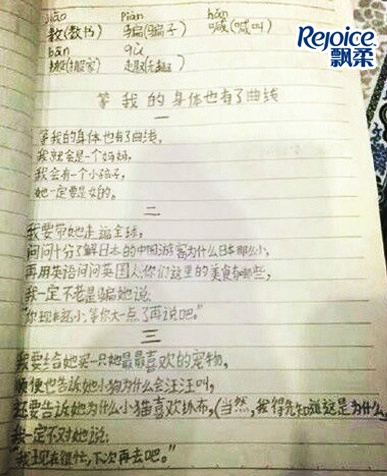 Rejoice
飘柔
jiāo piàn hǎn
教(教书) 骗(骗子) 喊(喊叫)
bān qù
搬(搬家) 趣(无趣)
等我的身体也有了曲线
一
等我的身体也有了曲线,
我就会是一个妈妈,
我会有一个小孩子,
她一定要是女的。
二
我要带她走遍全球,
问问十分了解日本的中国游客为什么日本那么小,
再用英语问问英国人,你们这里的美食有哪些,
我一定不老是骗她说:
"你现在还小,等你大一点了再说吧。"
三
我要给她买一只她最最喜欢的宠物,
顺便也告诉她小狗为什么会汪汪叫,
还要告诉她为什么小猫喜欢抓布,(当然,我得先知道这是为什么
我一定不对她说:
"我现在很忙,下次再去吧。"